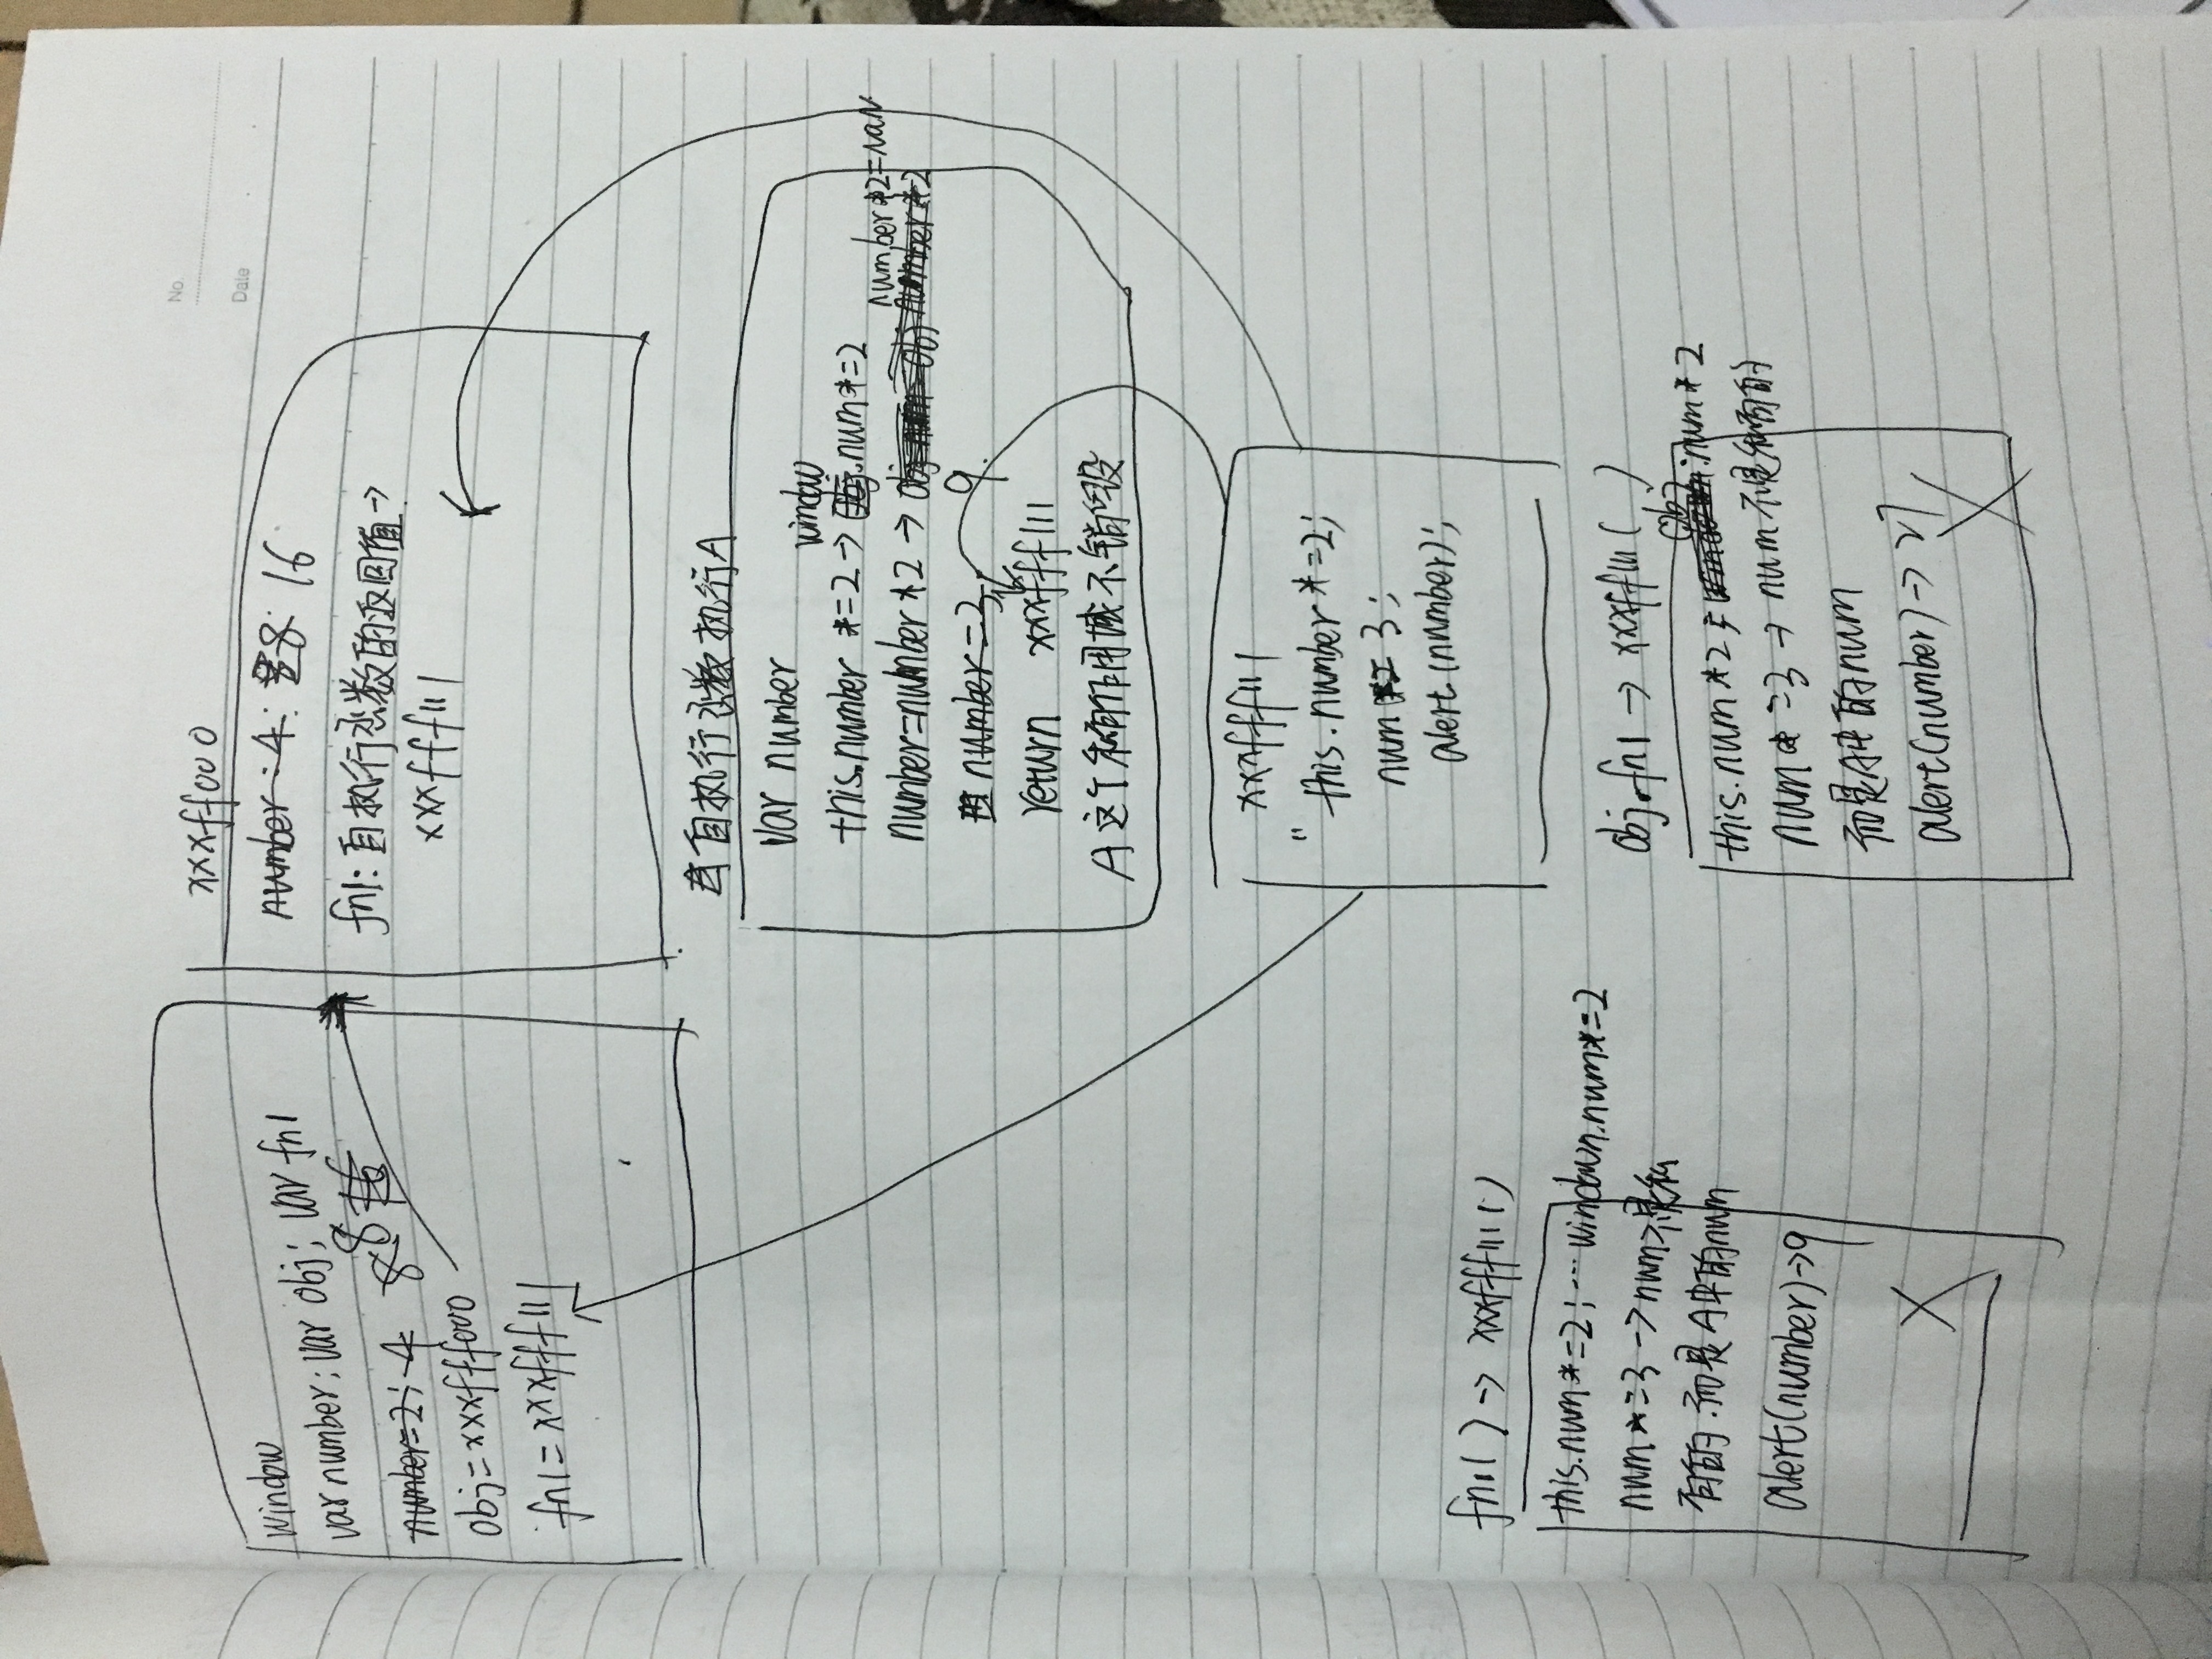 window
var number; var obj; var fn1
number=2; 4 8 8 16
obj=xxxfff000
fn1=xxxfff111
No.
Date
xxxff000
number: 4: 8 16
fn1: 自执行函数的返回值→
xxxfff111
自执行函数执行A
var number
window
this.number *=2 → obj.num*=2
number*2=NaN
number=number*2 → obj num obj number*2
number=3, 9.
return xxxfff111
A这个私有作用域不销毁
xxxfff111
" this.number *=2;
num *= 3;
alert(number);
fn1( ) → xxxfff111( )
this.num*=2; ... window.num*=2
num*=3 → num不是私
有的.而是A中的num
alert(number)→9
X
obj.fn1 → xxxff111( )
obj
this.num*2; window.num*2
num*=3 → num不是私有的
而是A中的num
alert(number) → 27
X